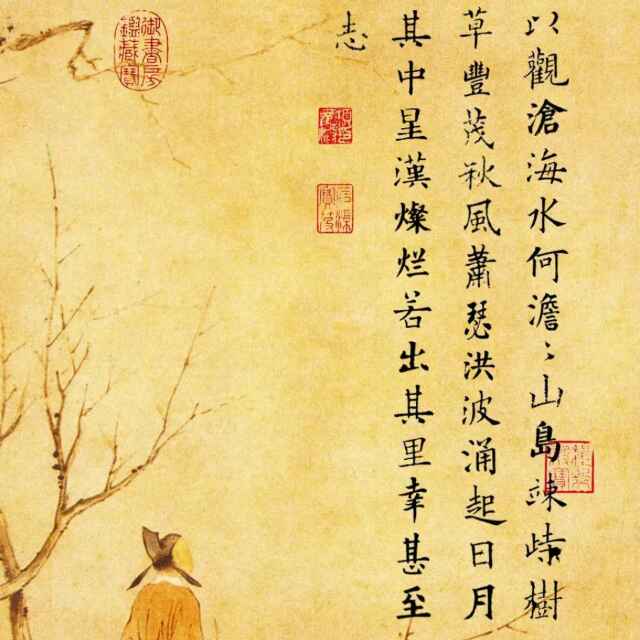 以觀滄海水何澹〻山島竦峙樹
草豐茂秋風蕭瑟洪波涌起日月
其中星漢燦烂若出其里幸甚至
志
御書房
鑑藏寶